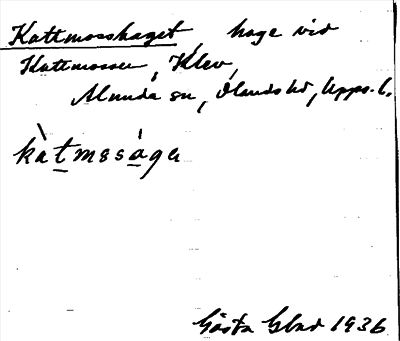 Kattmosshaget, hage vid
Kattmossen, Klev,
Alunda sn, Olands hd, Upps. l.
kàt̠mesa̠ge
Gösta Blad 1936